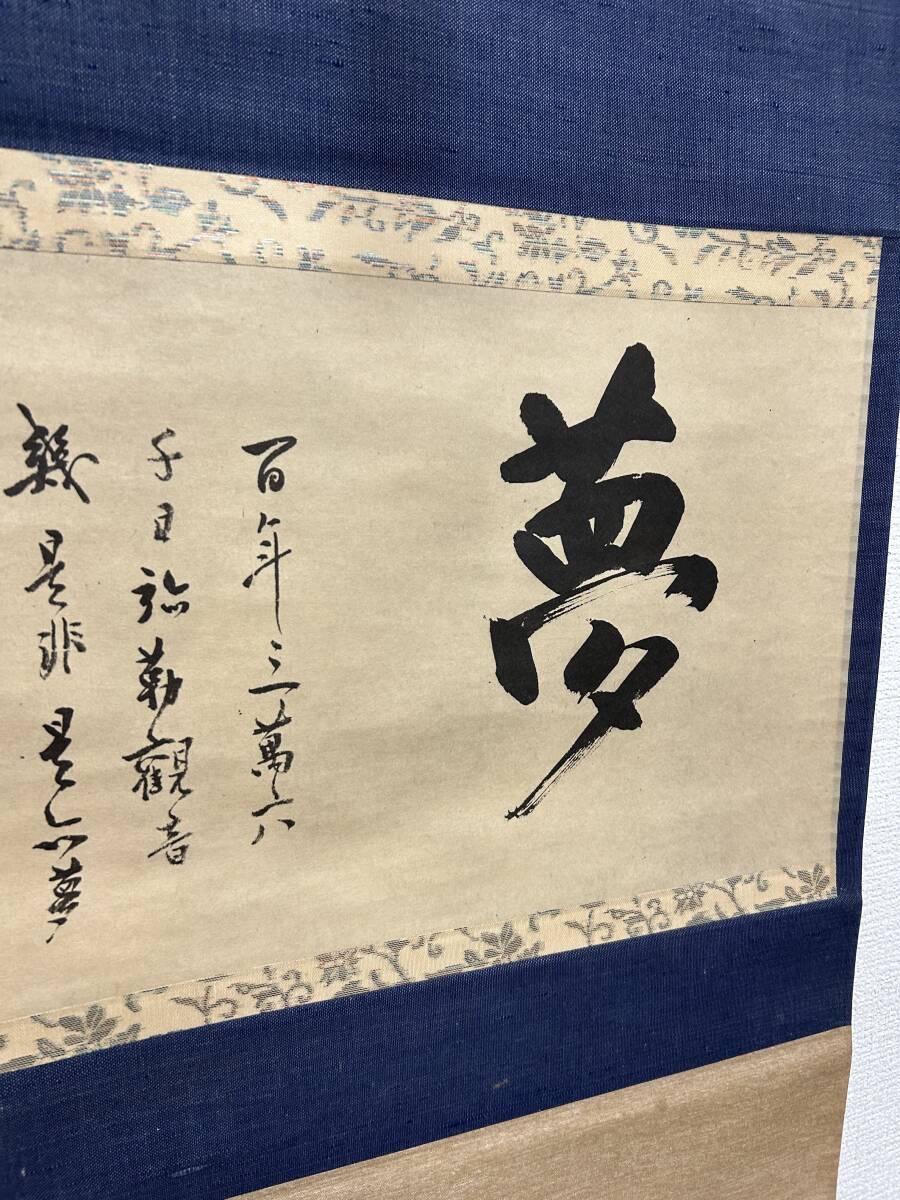 夢
百年三萬六
千日弥勒觀音
幾是非是亦夢